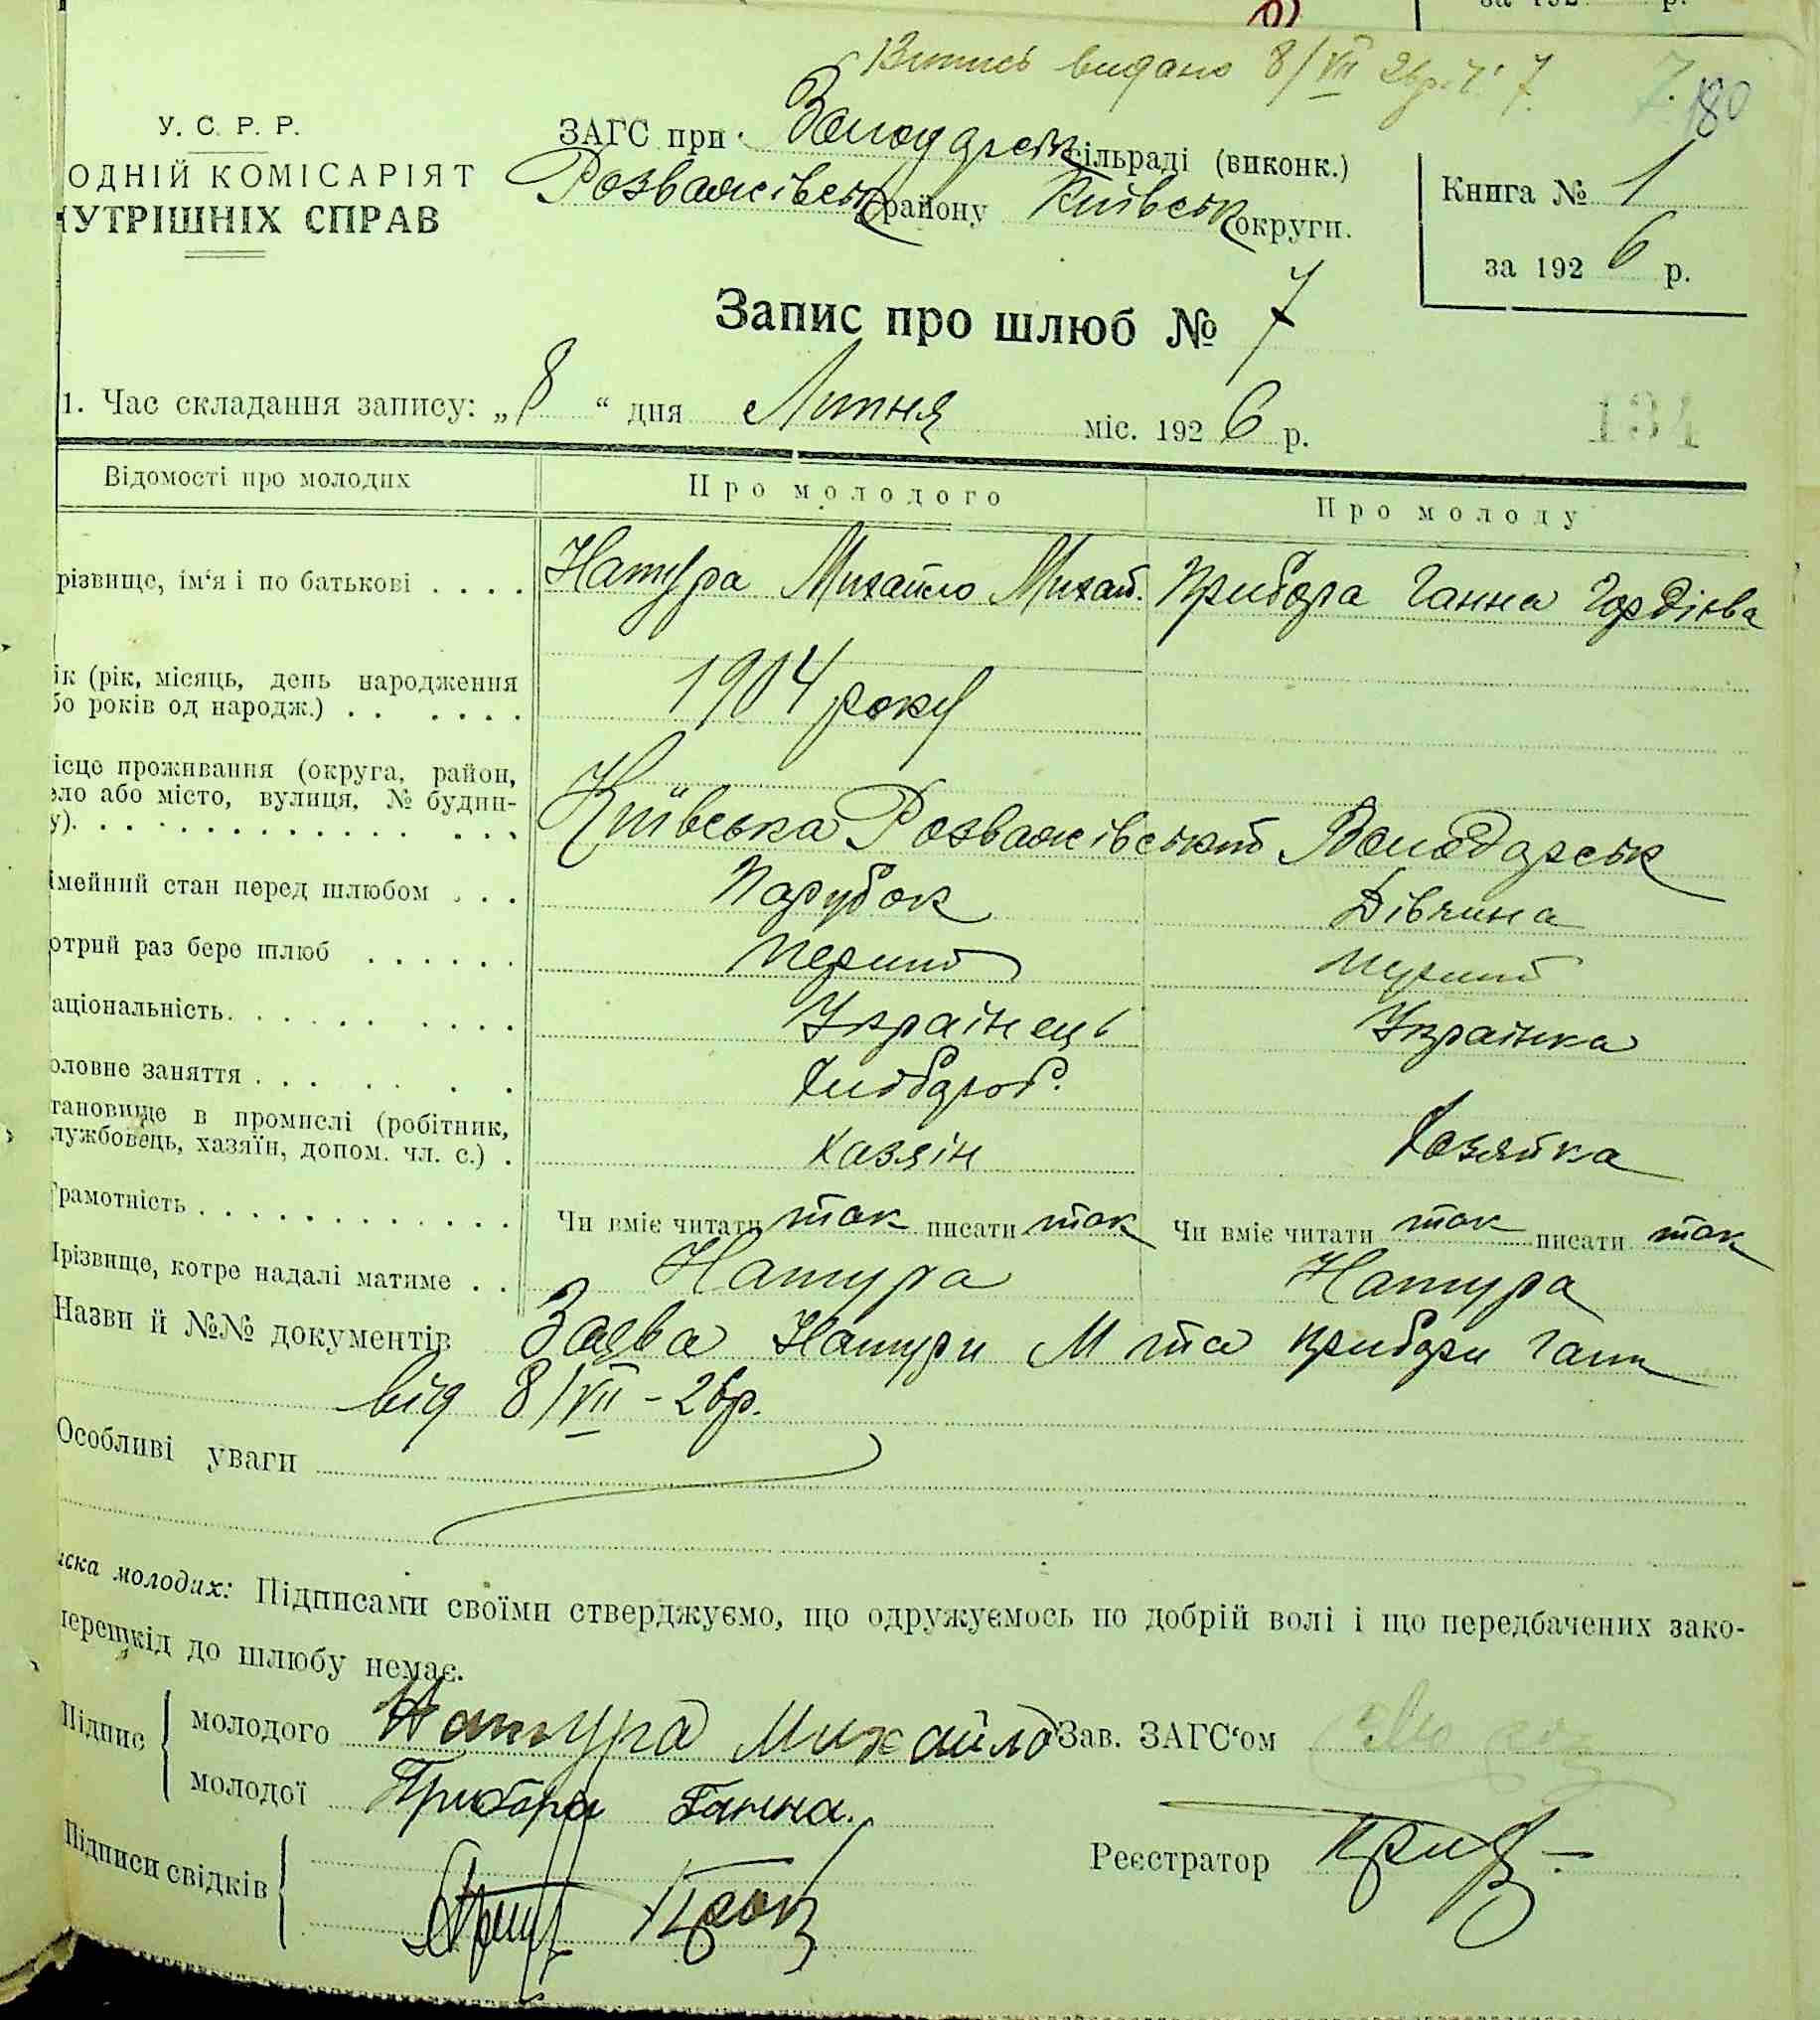 за 192 р.
Випись видано 8/VII 26р. Ч. 7.
7. 180
У. С. Р. Р.
ОДНІЙ КОМІСАРІЯТ
НУТРІШНІХ СПРАВ
ЗАГС при Володарськ сільраді (виконк.)
Розважівськ району Київськ округи.
Книга № 1
за 1926 р.
Запис про шлюб № 7
1. Час складання запису: „8“ дня Липня міс. 1926 р.
134
Відомості про молодих Про молодого Про молоду
різвище, ім‘я і по батькові . . . . Натура Михайло Михай. Прибора Ганна Гордієва
ік (рік, місяць, день народження
бо років од народж.) . . . . . . 1904 року
ісце проживання (округа, район,
ело або місто, вулиця, № будин-
у). . . . . . . . . . . . . . . Київська Розважівський Володарськ
імейний стан перед шлюбом . . . Парубок Дівчина
отрий раз бере шлюб . . . . . . Перший Перший
аціональність. . . . . . . . . . Українець Українка
оловне заняття . . . . . . . Хлібороб.
тановище в промислі (робітник,
лужбовець, хазяїн, допом. чл. с.) . Хазяін Хозяйка
Грамотність . . . . . . . . . . . . Чи вміє читати так писати так Чи вміє читати так писати так
Прізвище, котре надалі матиме . . Натура Натура
Назви й №№ документів Заява Натури М та Прибори Ганн
від 8/VII - 26р.
Особливі уваги
иска молодих: Підписами своїми стверджуємо, що одружуємось по добрій волі і що передбачених зако-
перешкід до шлюбу немає.
Підпис молодого Натура Михайло Зав. ЗАГС‘ом
молодої Прибора Ганна.
Підписи свідків
Реєстратор